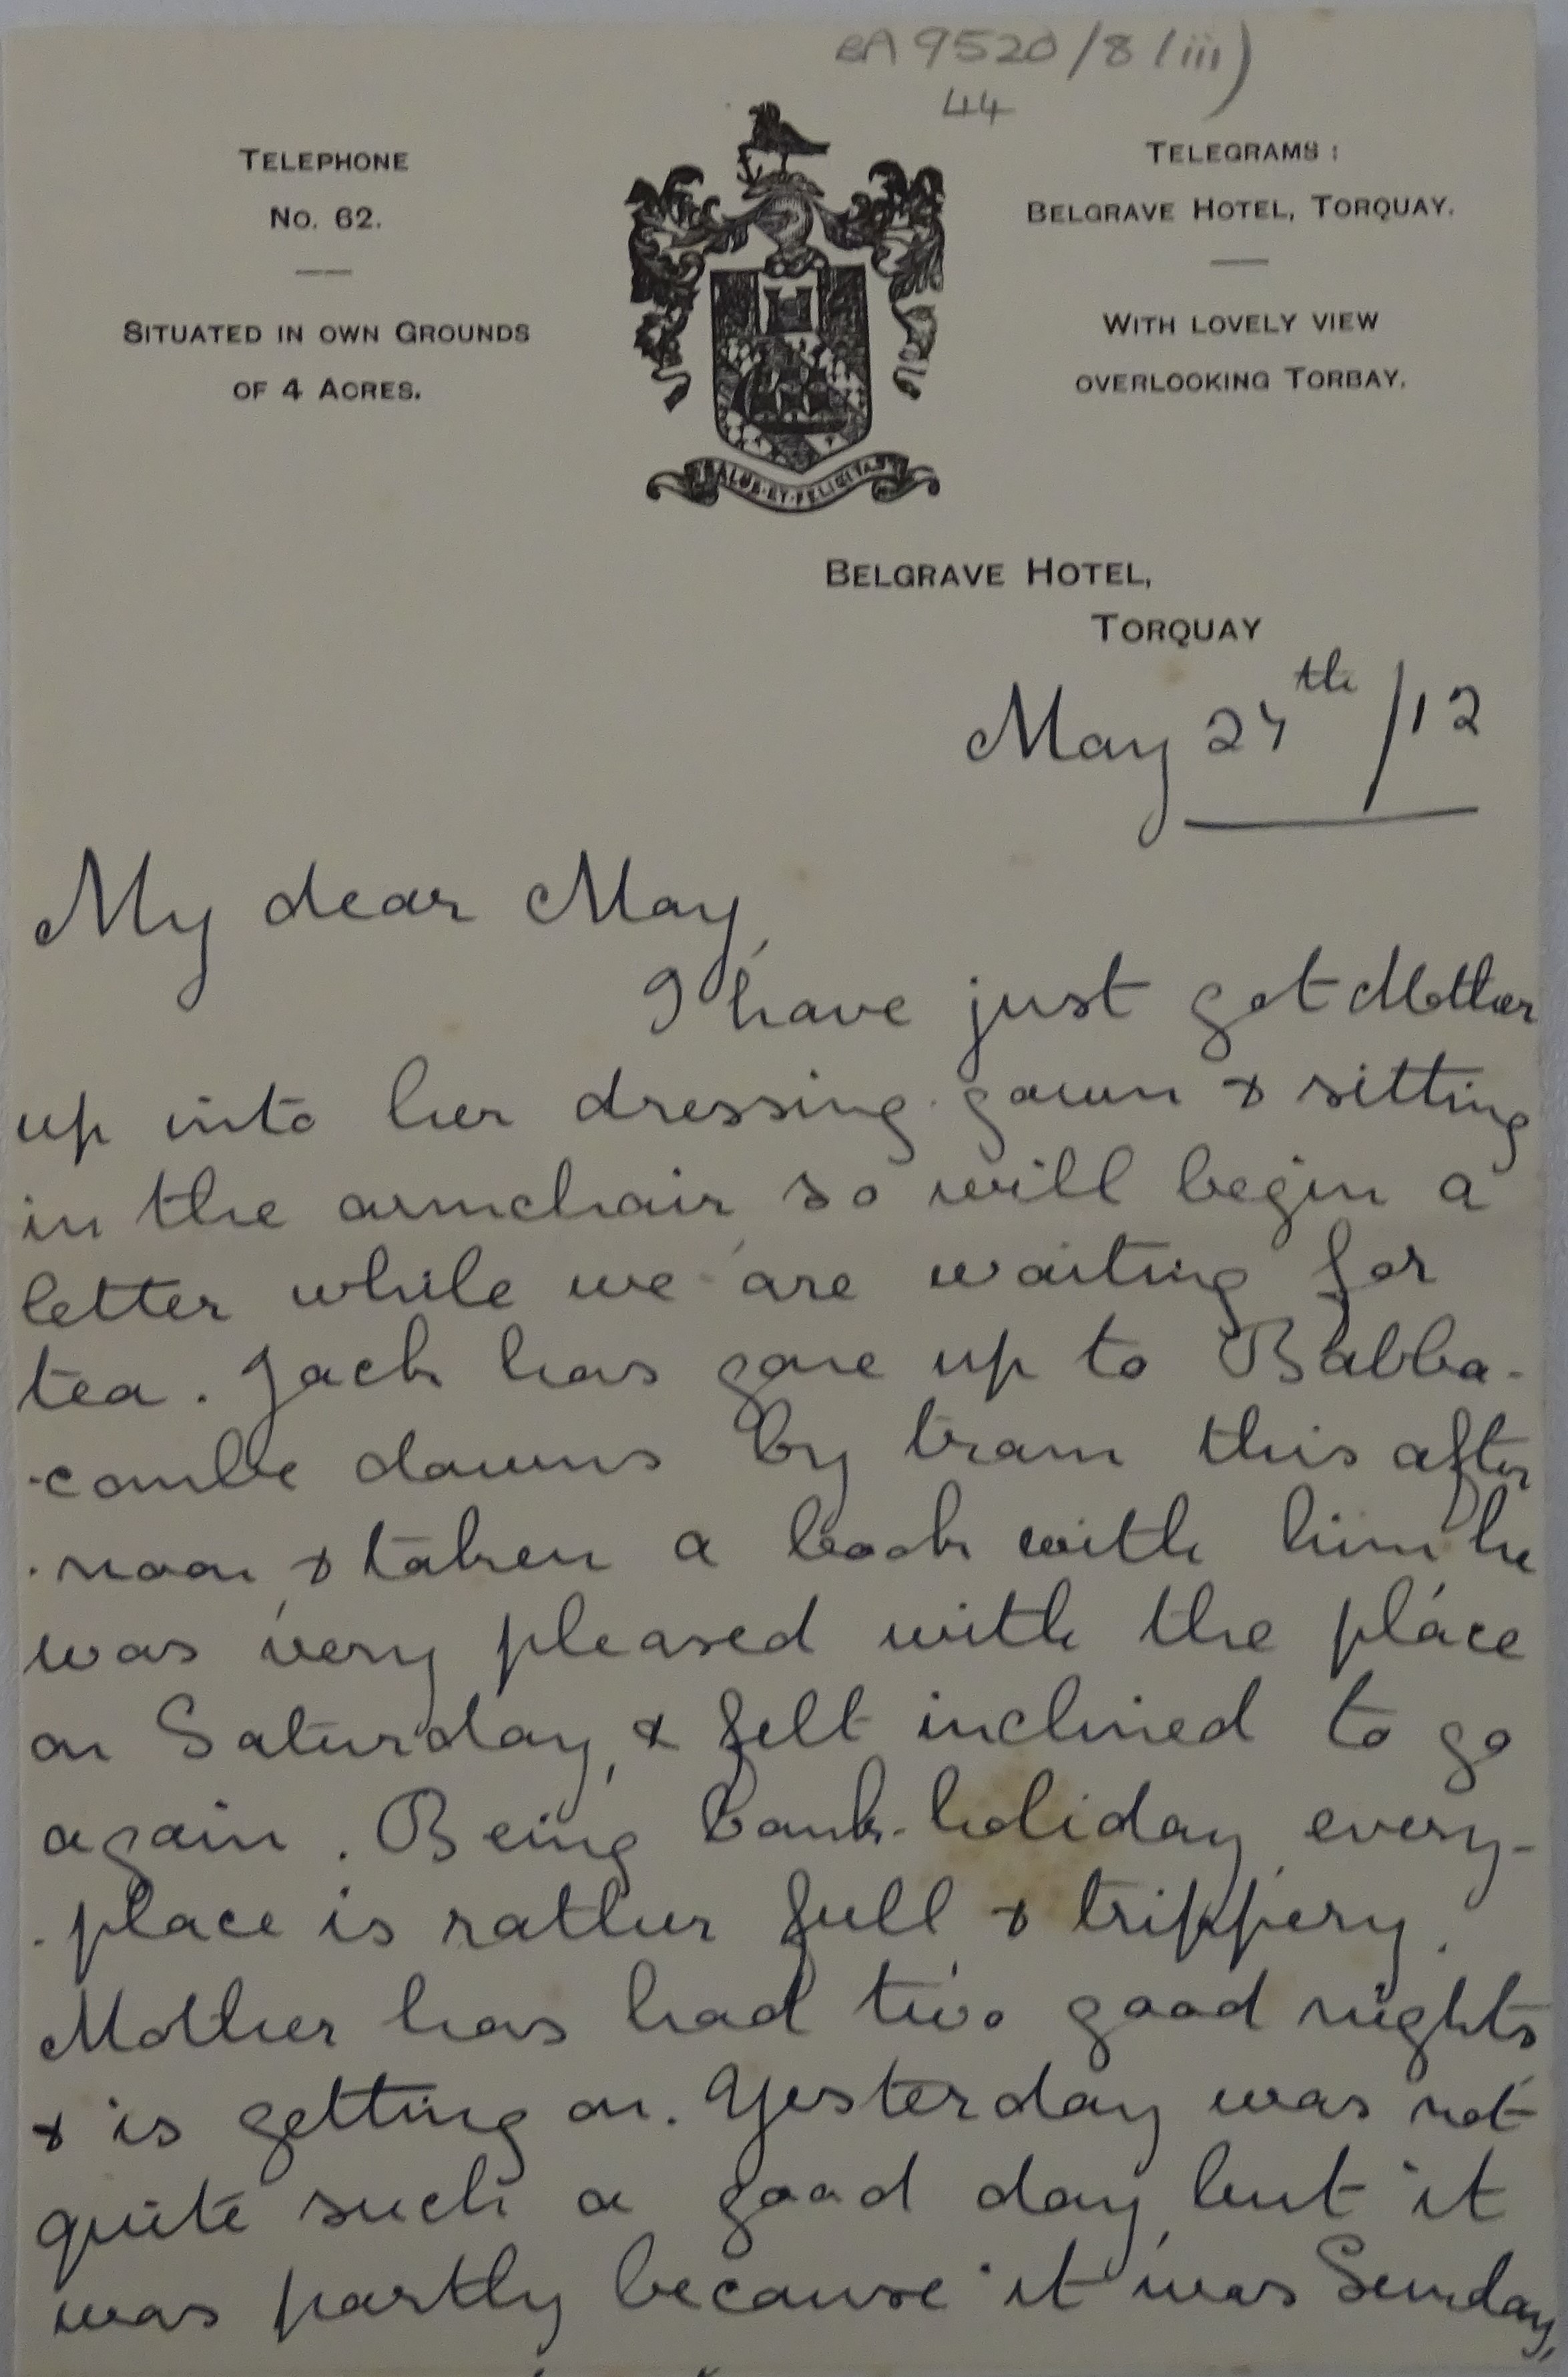 BA 9520/8(iii)
44
TELEPHONE
No. 62.
SITUATED IN OWN GROUNDS
OF 4 ACRES.
SALUS·ET·FELICITAS
TELEGRAMS:
BELGRAVE HOTEL, TORQUAY.
WITH LOVELY VIEW
OVERLOOKING TORBAY.
BELGRAVE HOTEL,
TORQUAY
May 27th /12
My dear May,
I have just got Mother
up into her dressing-gown & sitting
in the armchair, so will begin a
letter while we are waiting for
tea. Jack has gone up to Babba-
-combe downs by tram this after
-noon, & taken a book with him he
was very pleased with the place
on Saturday, & felt inclined to go
again. Being bank-holiday, every-
-place is rather full & trippery.
Mother has had two good nights
& is getting on. Yesterday was not
quite such a good day, but it
was partly because it was Sunday,